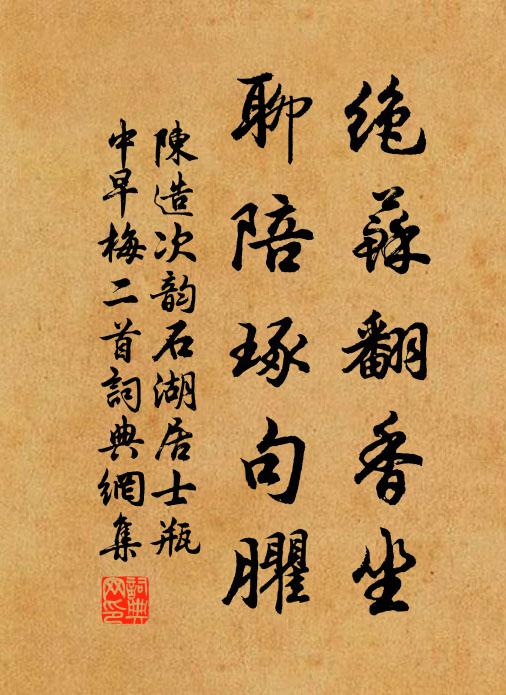 绝蘇翻香坐
聊陪琢句臞
陳造次韵石湖居士瓶
中早梅二首詞典網集
詞典
网印